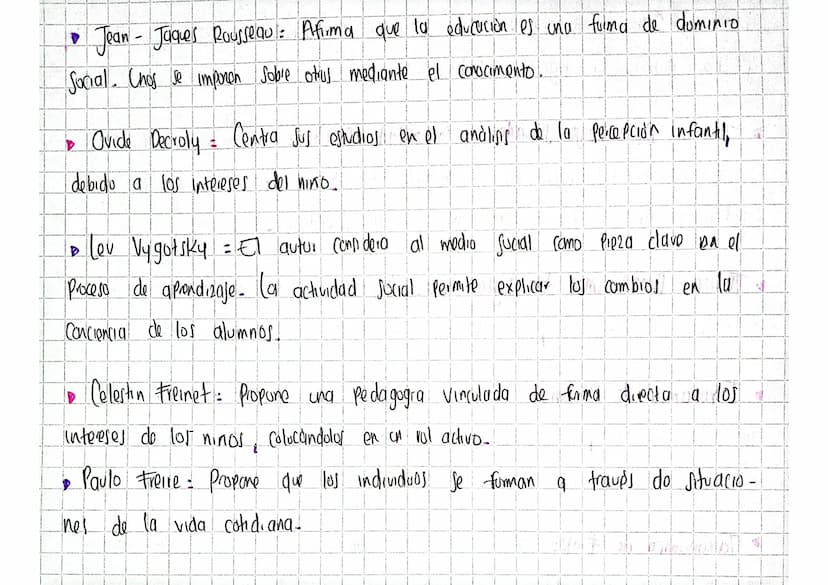 Jean - Jaques Rousseau = Afirma que la educación es una forma de dominio
Social. Unos se imponen sobre otros mediante el conocimento.
Ovide Decroly = Centra sus estudios en el análisis de la percepción infantil,
debido a los intereses del niño.
Lev Vygotsky = El autor considero al medio social como pieza clave en el
Proceso de aprendizaje. La actividad social permite explicar los cambios en la
Conciencia de los alumnos.
Celestin Freinet = Propone una pedagogra vinculada de forma directa a los
intereses de los ninos, colocándolos en un rol activo.
Paulo Freire = Propone que los individuos se forman a través de situacio-
nes de la vida cotidiana.